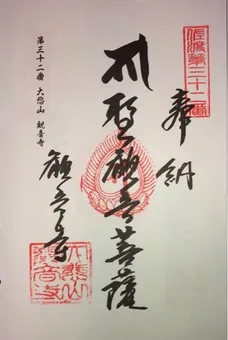 佐渡第三十二番
奉納
聖観音菩薩
第三十二番 大悲山 観音寺
観音寺
大悲山
観音寺